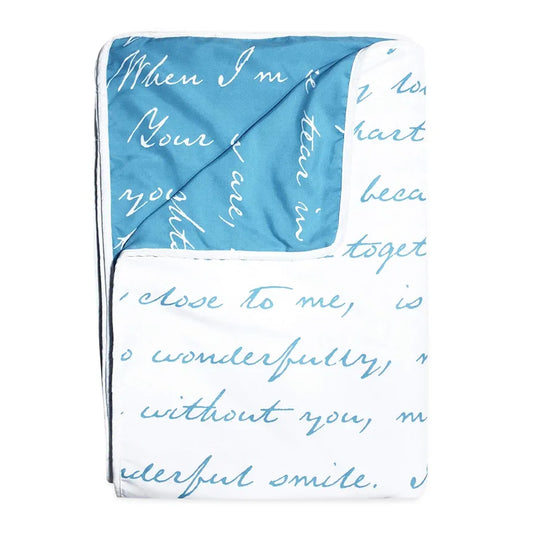 When I'm
Your
you
are,
tear in
part
beca
togeth
close to me, is
o wonderfully,
without you, m
nderful smile.